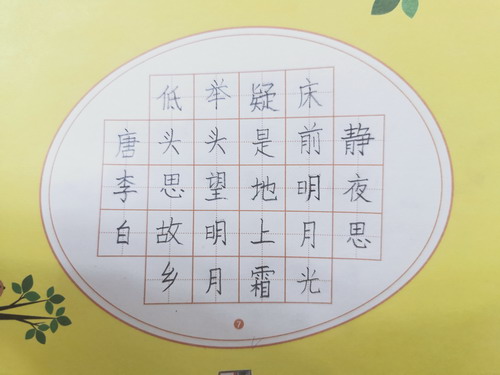 静夜思
床前明月光
疑是地上霜
举头望明月
低头思故乡
唐李白
7